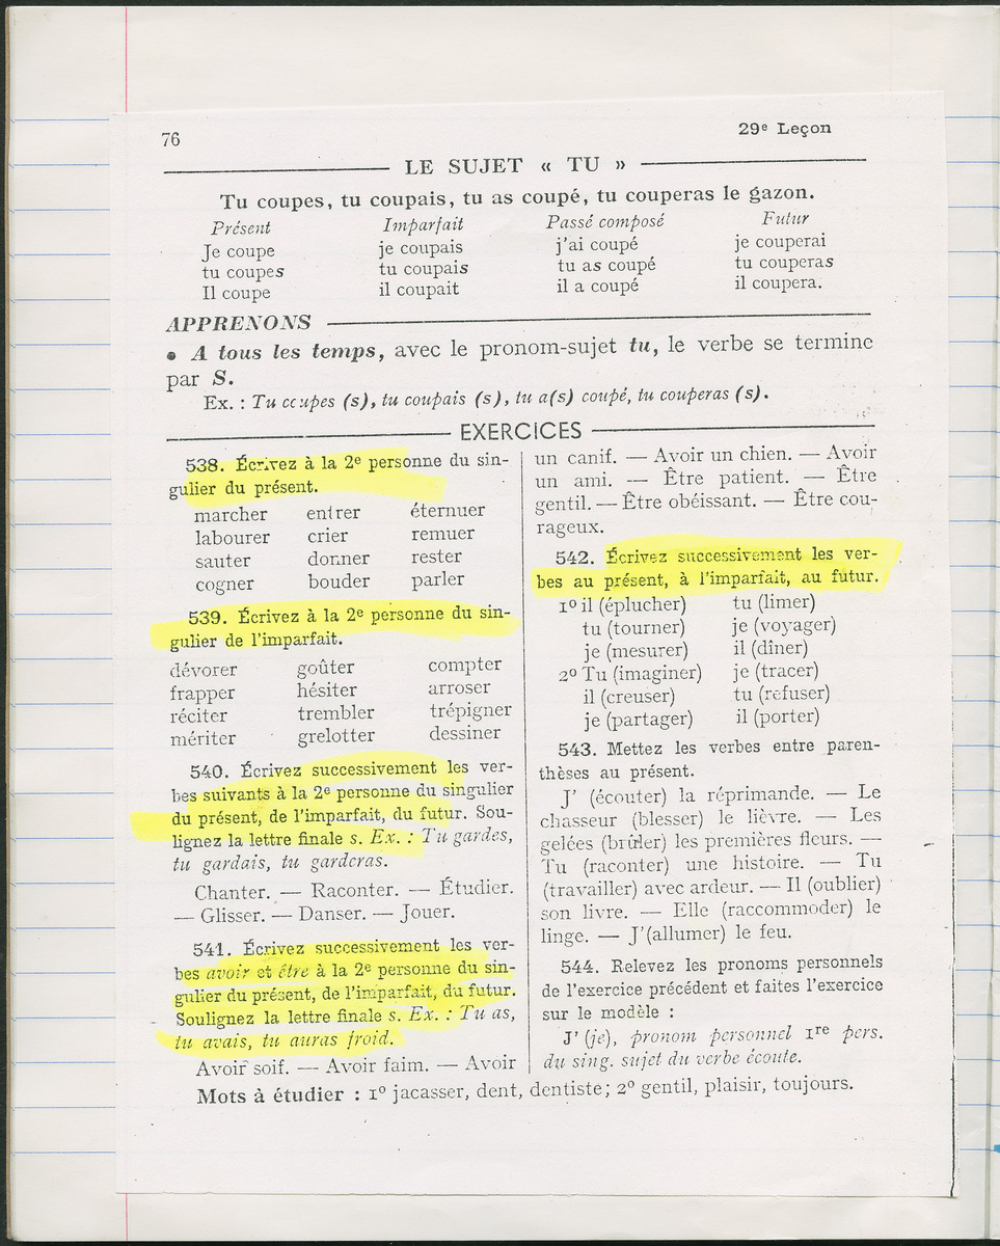 76
29e Leçon
LE SUJET « TU »
Tu coupes, tu coupais, tu as coupé, tu couperas le gazon.
Présent Imparfait Passé composé Futur
Je coupe je coupais j'ai coupé je couperai
tu coupes tu coupais tu as coupé tu couperas
Il coupe il coupait il a coupé il coupera.
APPRENONS
• A tous les temps, avec le pronom-sujet tu, le verbe se termine
par S.
Ex. : Tu coupes (s), tu coupais (s), tu a(s) coupé, tu couperas (s).
EXERCICES
538. Écrivez à la 2e personne du sin-
gulier du présent.
marcher entrer éternuer
labourer crier remuer
sauter donner rester
cogner bouder parler
539. Écrivez à la 2e personne du sin-
gulier de l'imparfait.
dévorer goûter compter
frapper hésiter arroser
réciter trembler trépigner
mériter grelotter dessiner
540. Écrivez successivement les ver-
bes suivants à la 2e personne du singulier
du présent, de l'imparfait, du futur. Sou-
lignez la lettre finale s. Ex. : Tu gardes,
tu gardais, tu garderas.
Chanter. — Raconter. — Étudier.
— Glisser. — Danser. — Jouer.
541. Écrivez successivement les ver-
bes avoir et être à la 2e personne du sin-
gulier du présent, de l'imparfait, du futur.
Soulignez la lettre finale s. Ex. : Tu as,
tu avais, tu auras froid.
Avoir soif. — Avoir faim. — Avoir
un canif. — Avoir un chien. — Avoir
un ami. — Être patient. — Être
gentil. — Être obéissant. — Être cou-
rageux.
542. Écrivez successivement les ver-
bes au présent, à l'imparfait, au futur.
1o il (éplucher) tu (limer)
tu (tourner) je (voyager)
je (mesurer) il (dîner)
2o Tu (imaginer) je (tracer)
il (creuser) tu (refuser)
je (partager) il (porter)
543. Mettez les verbes entre paren-
thèses au présent.
J' (écouter) la réprimande. — Le
chasseur (blesser) le lièvre. — Les
gelées (brûler) les premières fleurs. —
Tu (raconter) une histoire. — Tu
(travailler) avec ardeur. — Il (oublier)
son livre. — Elle (raccommoder) le
linge. — J'(allumer) le feu.
544. Relevez les pronoms personnels
de l'exercice précédent et faites l'exercice
sur le modèle :
J' (je), pronom personnel 1re pers.
du sing. sujet du verbe écoute.
Mots à étudier : 1o jacasser, dent, dentiste; 2o gentil, plaisir, toujours.